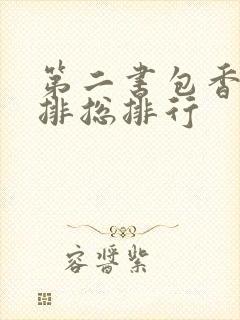 第二书包香
排总排行
容酱紫